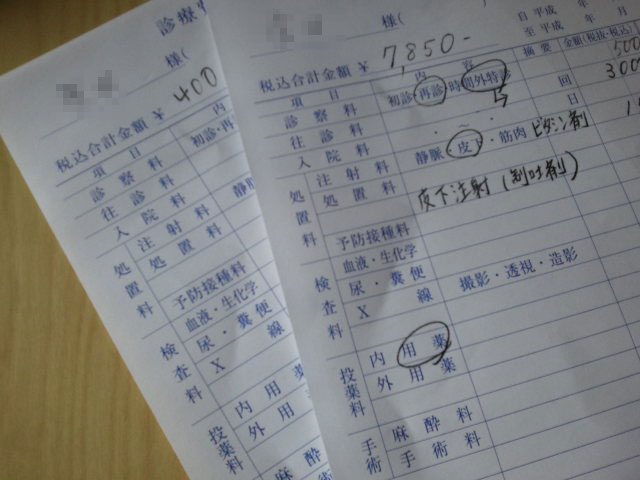 診療
様(
税込合計金額 ¥ 400
項 目
内
診 察 料
初診・再
往 診 料
入 院 料
処置料
注 射 料
静脈
処 置 料
予防接種料
血液・生化学
検査料
尿・糞便
X 線
投薬料
内 用 薬
外 用 薬
麻 酔
様(
自 平成 年 月
至 平成 年
税込合計金額 ¥ 7,850-
項 目
内 容
摘 要
金額(税抜・税込)
診 察 料
初診・再診・時間外・特診
500
往 診 料
回
300
入 院 料
日
処置料
注 射 料
静脈・皮下・筋肉 ビタミン剤
処 置 料
皮下注射(制吐剤)
予防接種料
血液・生化学
検査料
尿・糞便
X 線
撮影・透視・造影
投薬料
内 用 薬
外 用 薬
手術
麻 酔 料
手 術 料